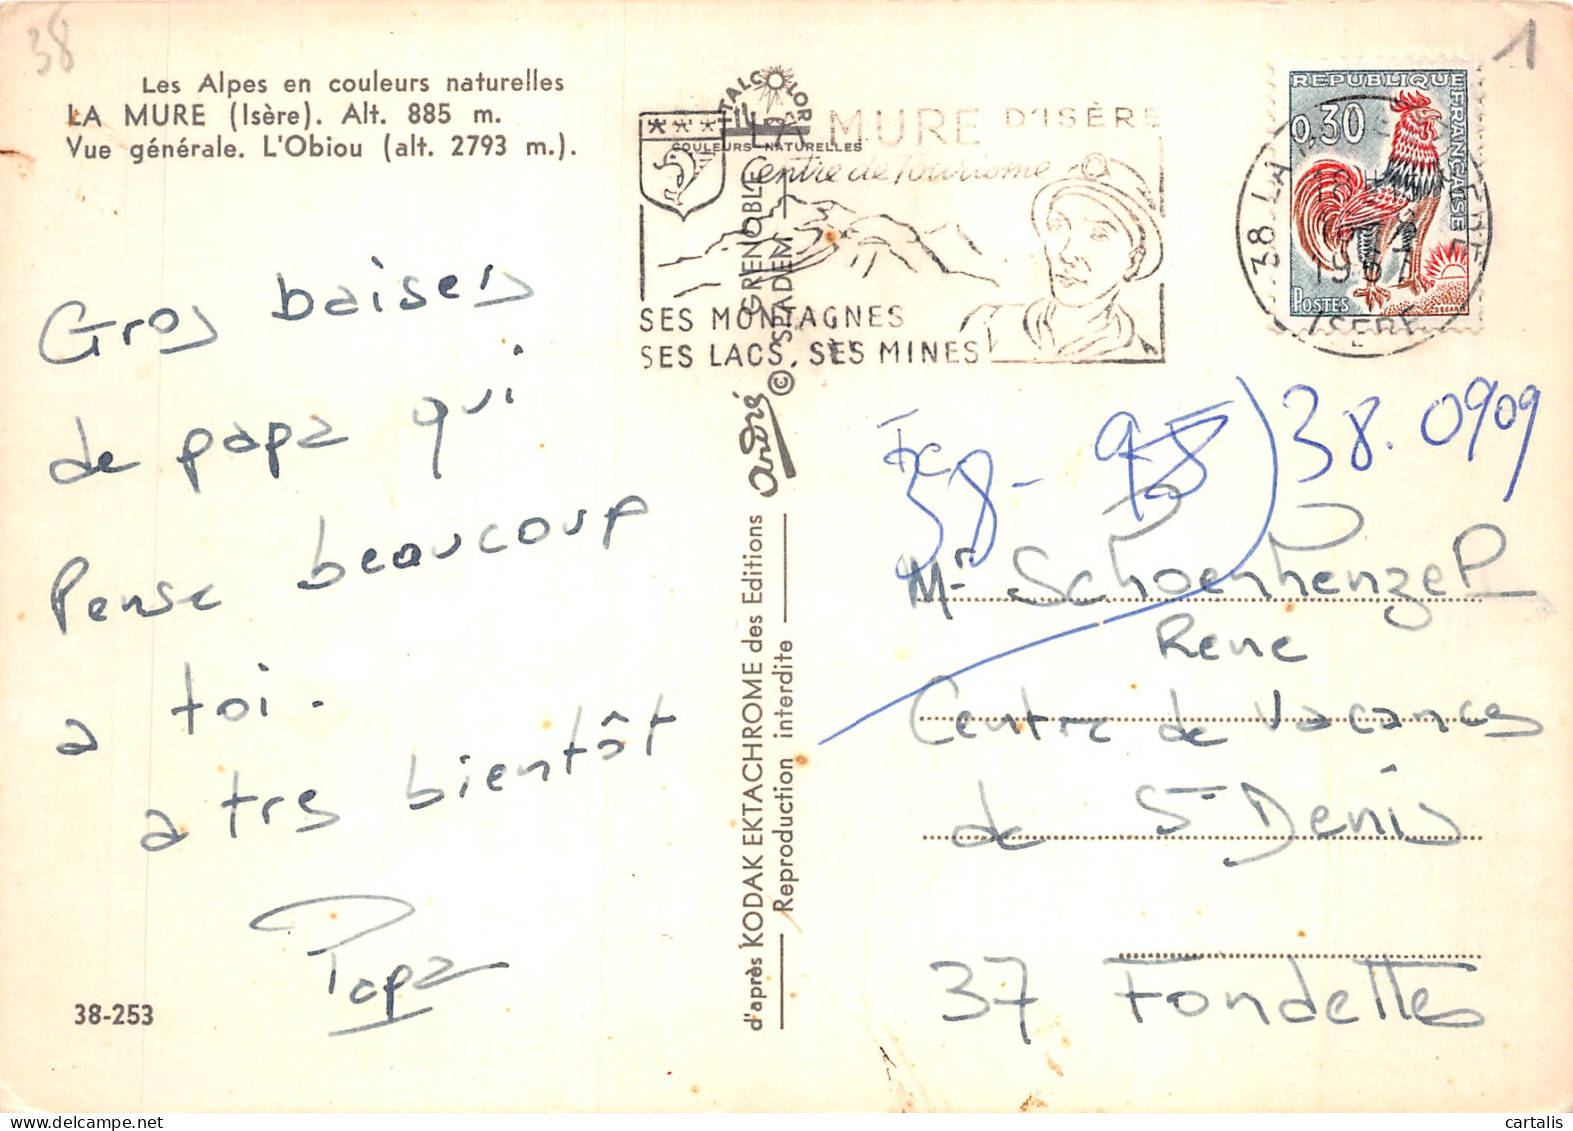 38
1
Les Alpes en couleurs naturelles
LA MURE (Isère). Alt. 885 m.
Vue générale. L'Obiou (alt. 2793 m.).
ITALCOLOR
COULEURS NATURELLES
LA MURE D'ISÈRE
Centre de Tourisme
SES MONTAGNES
SES LACS, SES MINES
REPUBLIQUE FRANÇAISE
0,30
POSTES
38 LA MURE
1967
ISERE
Gros baisers
de papa qui
Pense beaucoup
a toi.
a tres bientôt
Papa
38-253
d'après KODAK EKTACHROME des Editions andré GRENOBLE
Reproduction interdite © SPADEM
38-98) 38.0909
Mr Schoenhenzel
Rene
Centre de Vacances
de St Denis
37 Fondettes
cartalis.com